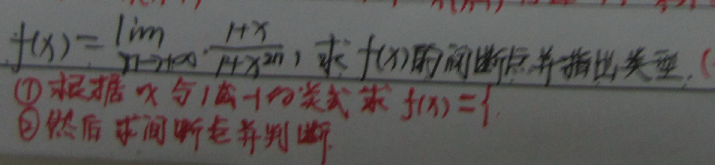 f(x)=lim n→+∞ (1+x)/(1+x^{2n}), 求f(x)的间断点并指出类型.
①根据x与1或-1的关式求f(x)={
②然后求间断点并判断.